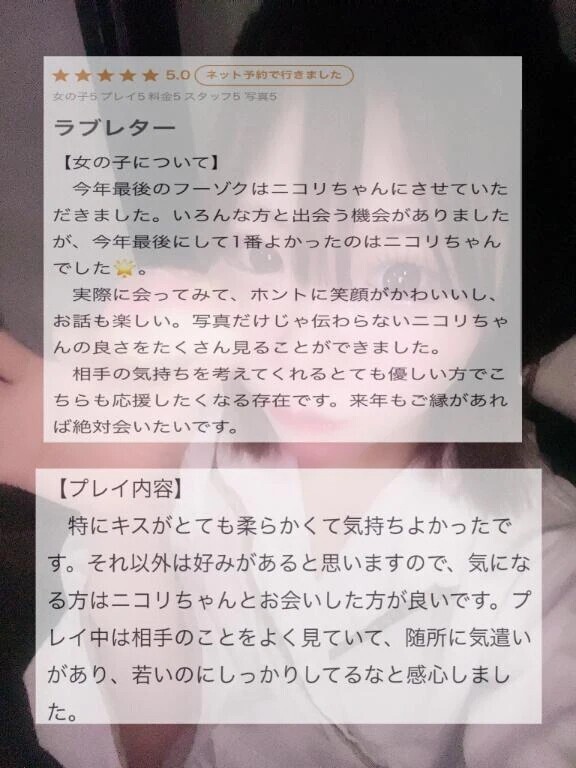 ★★★★★ 5.0 ネット予約で行きました
女の子5 プレイ5 料金5 スタッフ5 写真5
ラブレター
【女の子について】
　今年最後のフーゾクはニコリちゃんにさせていた
だきました。いろんな方と出会う機会がありました
が、今年最後にして1番よかったのはニコリちゃん
でした🌟。
　実際に会ってみて、ホントに笑顔がかわいいし、
お話も楽しい。写真だけじゃ伝わらないニコリちゃ
んの良さをたくさん見ることができました。
　相手の気持ちを考えてくれるとても優しい方でこ
ちらも応援したくなる存在です。来年もご縁があれ
ば絶対会いたいです。
【プレイ内容】
　特にキスがとても柔らかくて気持ちよかったで
す。それ以外は好みがあると思いますので、気にな
る方はニコリちゃんとお会いした方が良いです。プ
レイ中は相手のことをよく見ていて、随所に気遣い
があり、若いのにしっかりしてるなと感心しまし
た。